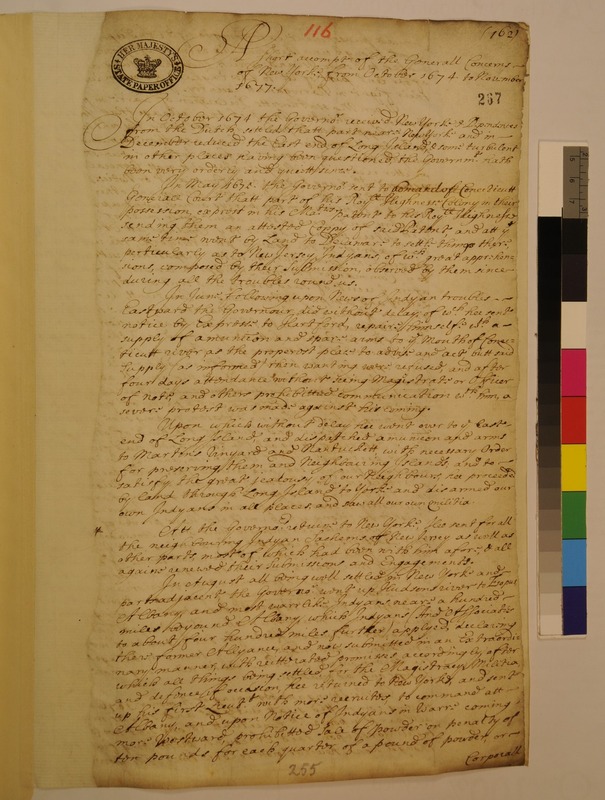 116
(162)
HER MAJESTY'S
STATE PAPER OFFICE
A Short accompt of the Generall Concerns
of New Yorke from October 1674 to November
1677.
267
In October 1674 the Governor received New Yorke & Dependences
from the Dutch, settled thatt part neare New Yorke and in
December reduced the East end of Long Island, & some turbulent
in other places having been questioned the Governmt hath
been very orderly and quiett since.
In May 1675. the Governor sent to demand of Conecticutt
Generall Court that part of his Royll Highness Colony in their
possession, exprest in his Maties Patent to his Royll Highnesse
sending them an attested Coppy of said Patent and att ye
same time went by Land to Delaware to settle things there
perticularly as to New Jersey Indyans of wch great apprehen-
sions, composed by their submission, observed by them since
during all the troubles round us.
In June following upon News of Indyan troubles
Eastward the Governour, did without delay, of wch hee sent
notice by Express to Hartford, repaire himselfe with a
supply of amunition and spare arms to ye Mouth of Conec-
ticut River as the properest place to advise and act butt said
supply (as informed then wanting were refused, and after
four days attendance without seing Magistrate or Officer
of note and others prohibitted communication with him, a
severe protest was made against his coming.
Upon which without delay hee went over to ye East
end of Long Island and dispatched amunicon and arms
to Martins Vinyard and Nantuckett with necessary Orders
for preserving them and Neighbouring Islands, and to
satisfy the great jealousy of our Neighbours, hee proceeded
by land through Long Island to Yorke and disarmed our
own Indyans in all places, and saw all our own militia.
Att the Governors returne to New Yorke hee sent for all
the neighbouring Indyan Sachems of New Jersey as well as
other parts most of which had been with him afore, & all
againe renewed their Submissions and Engagements.
In August all being well settled in New Yorke and
parts adjacent the Governor went up Hudsons river to Esopus
Albany, and most warrlike Indyans neare a hundred
miles beyound Albany, which Indyans, And Associates
to about four hundred miles further applyed, declaring
there former Allyance, and now submitted in an Extraordi-
nary manner, with reitterated promises accordingly after
which all things being settled for the Magistracy, Militia,
and defence, if occasion hee returned to New Yorke, and sent
up his first Lieut. with more recruites to command att
Albany, and upon Notice of Indyans in Warre coming
more Westward, prohibitted sale of Powder on penalty of
ten pounds for each quarter of a pound of powder or
Corporall
255